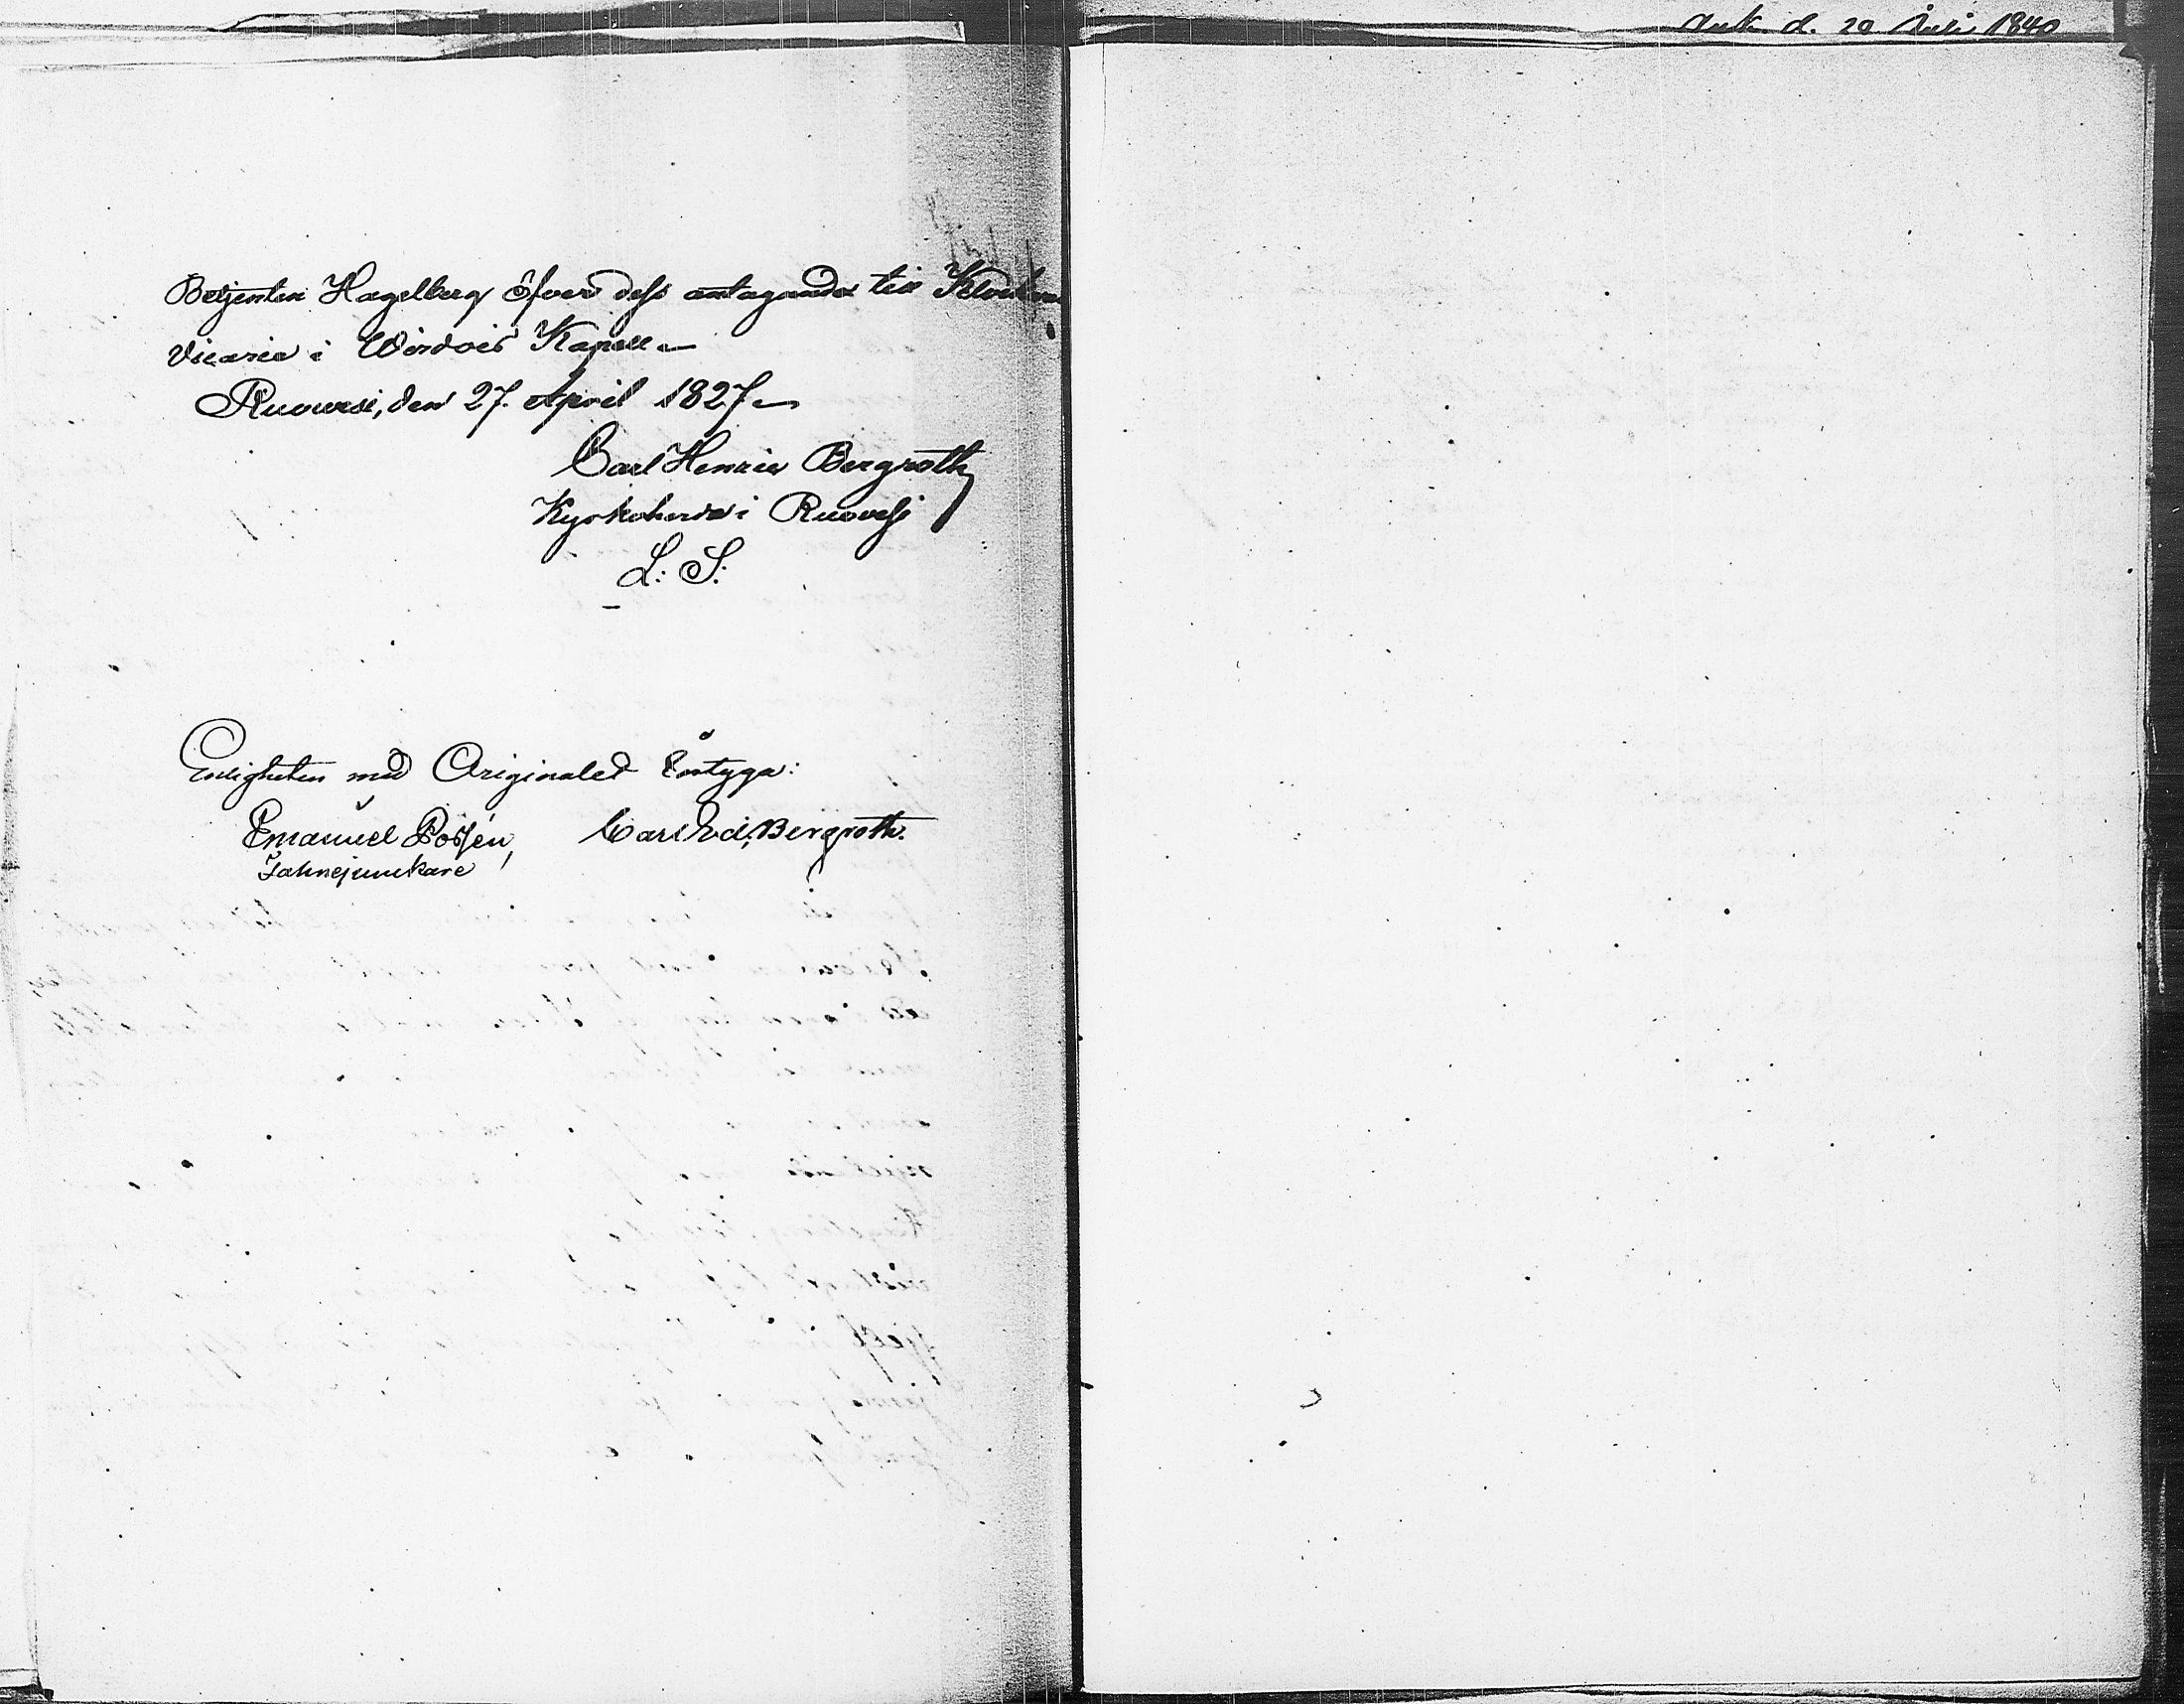 Betjenten Hagelberg öfver dess antagande till Klockare
Vicarie i Wirdois Kapell
Ruovesi, den 27. April 1827
Carl Henric Bergroth
Kyrkoherde i Ruovesi
L: S:
Enligheten med Originalet intyga:
Emanuel Posfén, Carl Ed. Bergroth.
Fahnejunkare
Ank d. 20 Juli 1840